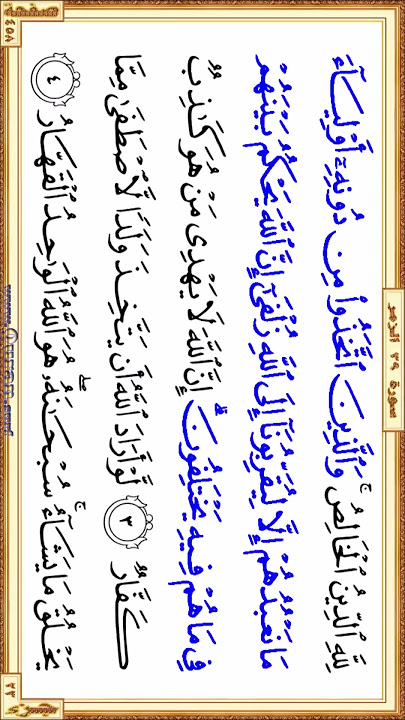 سورة ٣٩ الزمر
٤٥٨
لِلَّهِ ٱلدِّينُ ٱلْخَالِصُ ۚ وَٱلَّذِينَ ٱتَّخَذُوا۟ مِن دُونِهِۦٓ أَوْلِيَآءَ
مَا نَعْبُدُهُمْ إِلَّا لِيُقَرِّبُونَآ إِلَى ٱللَّهِ زُلْفَىٰٓ إِنَّ ٱللَّهَ يَحْكُمُ بَيْنَهُمْ
فِى مَا هُمْ فِيهِ يَخْتَلِفُونَ ۗ إِنَّ ٱللَّهَ لَا يَهْدِى مَنْ هُوَ كَـٰذِبٌ
كَفَّارٌ ٣ لَّوْ أَرَادَ ٱللَّهُ أَن يَتَّخِذَ وَلَدًا لَّٱصْطَفَىٰ مِمَّا
يَخْلُقُ مَا يَشَآءُ ۚ سُبْحَـٰنَهُۥ ۖ هُوَ ٱللَّهُ ٱلْوَٰحِدُ ٱلْقَهَّارُ ٤